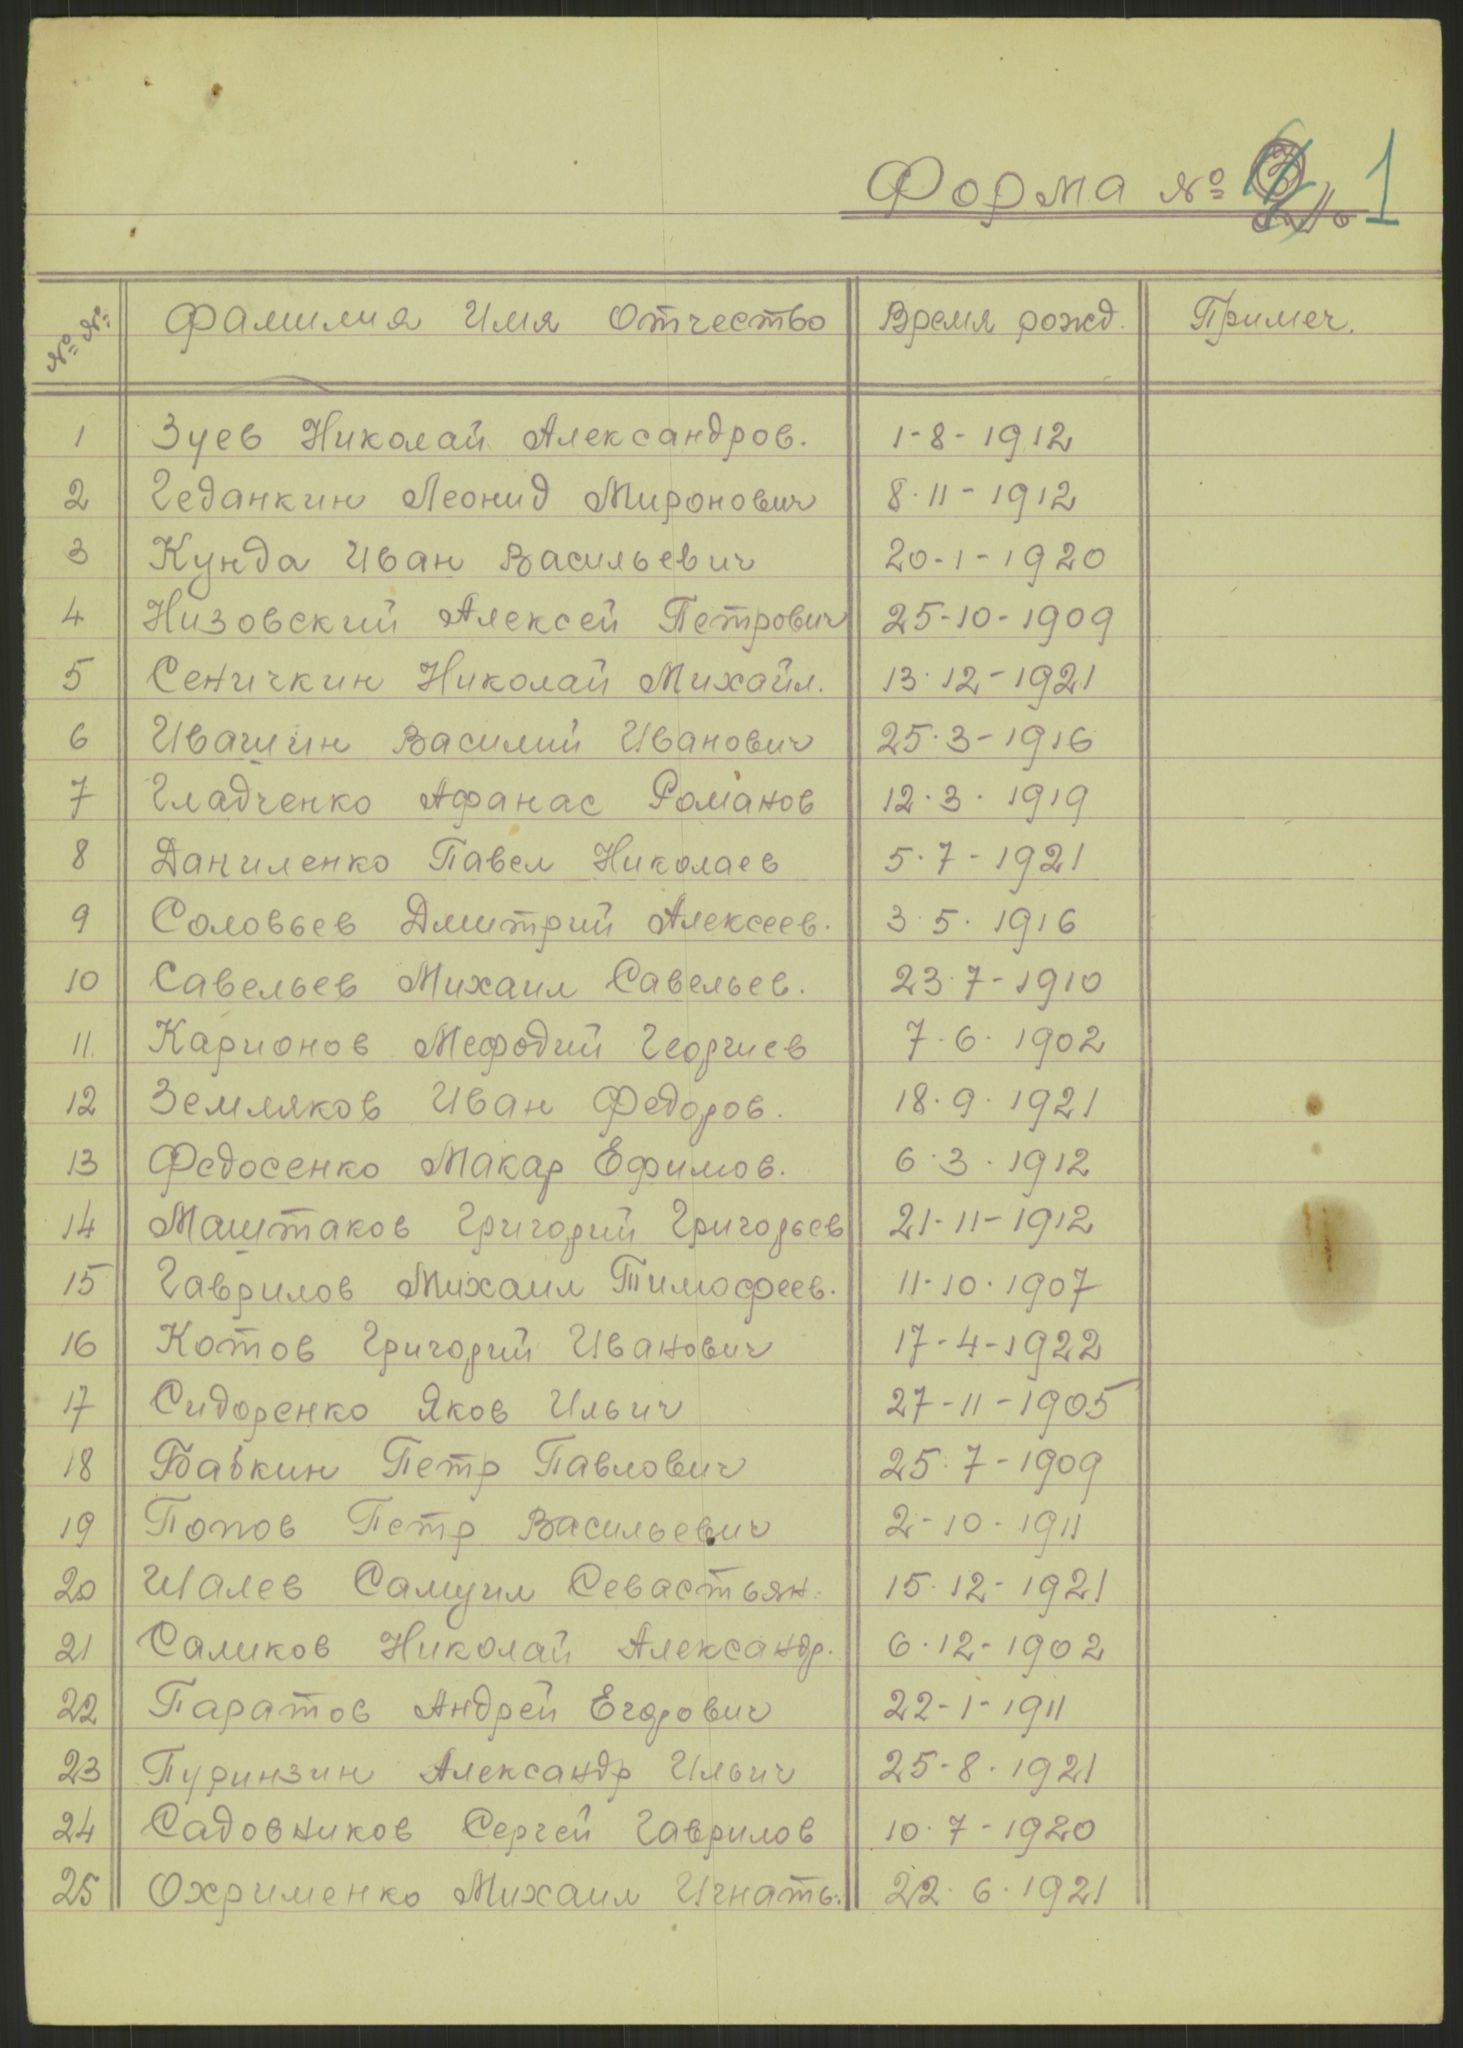 Форма № 1
№ № Фамилия Имя Отчество Время рожд. Примеч.
1 Зуев Николай Александров. 1-8-1912
2 Геданкин Леонид Миронович 8.11-1912
3 Кунда Иван Васильевич 20-1-1920
4 Низовский Алексей Петрович 25-10-1909
5 Сеничкин Николай Михайл. 13.12-1921
6 Ивашин Василий Иванович 25.3-1916
7 Гладченко Афанас Романов 12.3.1919
8 Даниленко Павел Николаев 5.7-1921
9 Соловьев Дмитрий Алексеев. 3.5.1916
10 Савельев Михаил Савельев. 23.7-1910
11 Карионов Мефодий Георгиев 7.6.1902
12 Земляков Иван Федоров. 18.9.1921
13 Федосенко Макар Ефимов. 6.3.1912
14 Маштаков Григорий Григорьев 21-11-1912
15 Гаврилов Михаил Тимофеев. 11-10.1907
16 Котов Григорий Иванович 17-4-1922
17 Сидоренко Яков Ильич 27-11-1905
18 Бабкин Петр Павлович 25.7-1909
19 Попов Петр Васильевич 2-10-1911
20 Шалев Самуил Севастьян. 15.12-1921
21 Саликов Николай Александр. 6.12-1902
22 Паратов Андрей Егорович 22-1-1911
23 Пуринзин Александр Ильич 25-8.1921
24 Садовников Сергей Гаврилов 10.7-1920
25 Охрименко Михаил Игнать. 22.6.1921